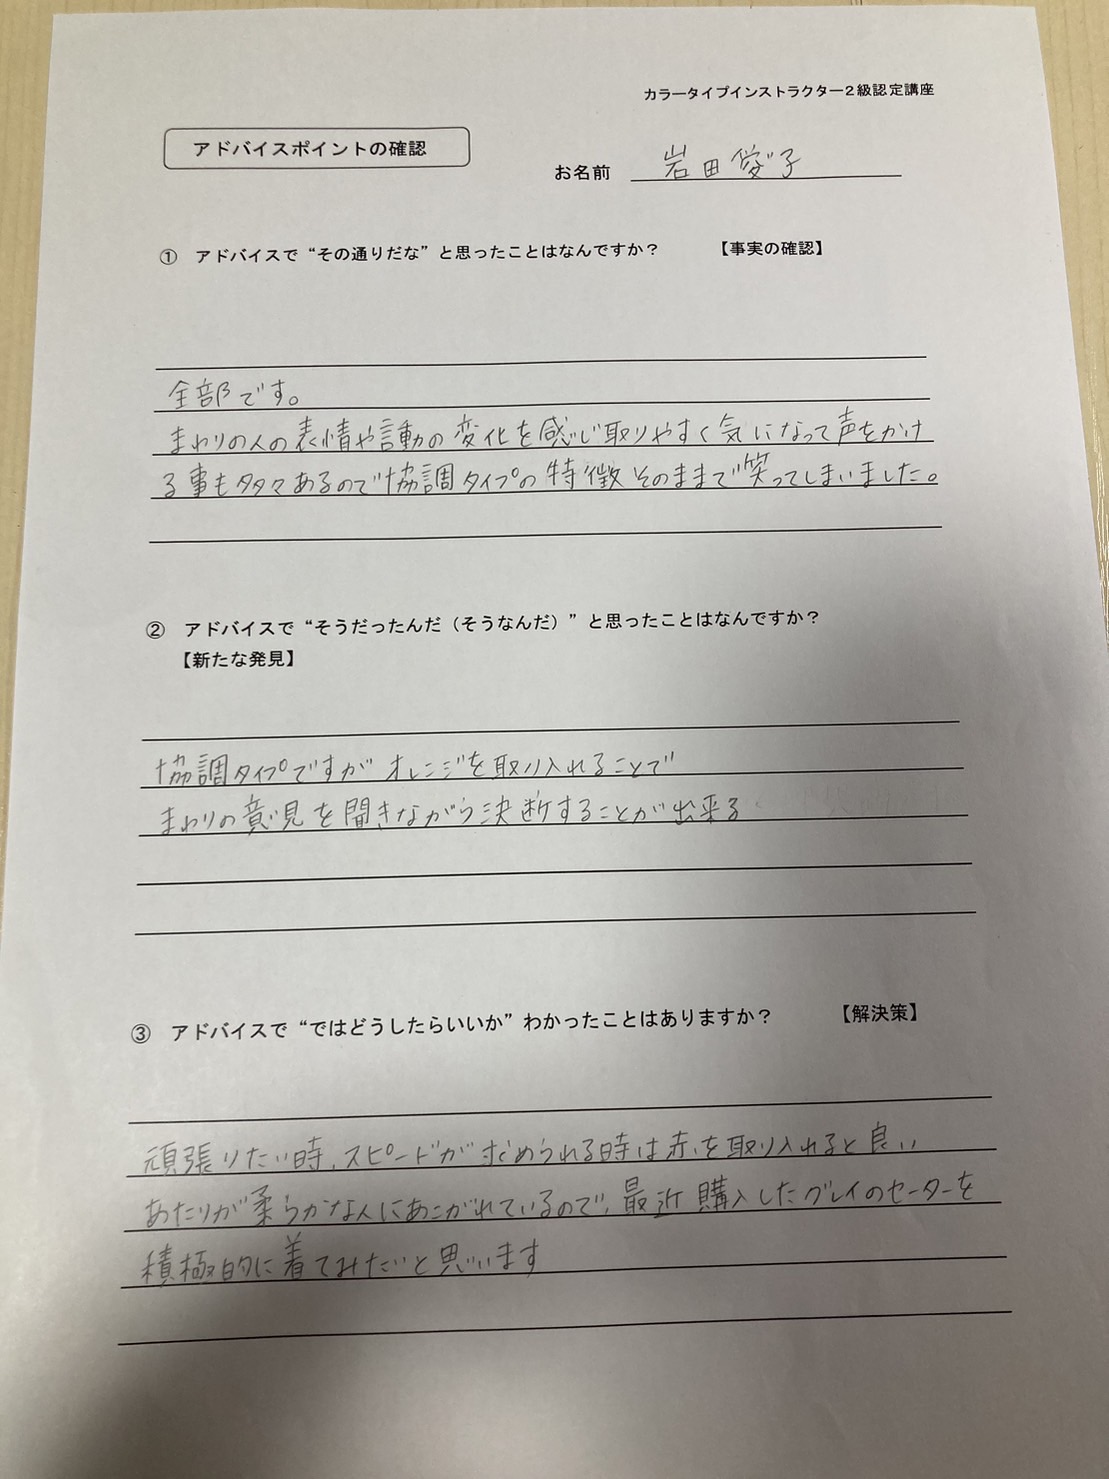 カラータイプインストラクター2級認定講座
アドバイスポイントの確認
お名前 岩田愛子
① アドバイスで“その通りだな”と思ったことはなんですか？ 【事実の確認】
全部です。
まわりの人の表情や言動の変化を感じ取りやすく気になって声をかけ
る事も多々あるので協調タイプの特徴そのままで笑ってしまいました。
② アドバイスで“そうだったんだ（そうなんだ）”と思ったことはなんですか？
【新たな発見】
協調タイプですがオレンジを取り入れることで
まわりの意見を聞きながら決断することが出来る
③ アドバイスで“ではどうしたらいいか”わかったことはありますか？ 【解決策】
頑張りたい時、スピードが求められる時は赤を取り入れると良い
あたりが柔らかな人にあこがれているので、最近購入したグレイのセーターを
積極的に着てみたいと思います